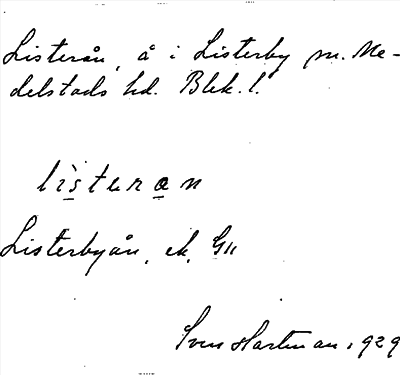 Listerån, å i Listerby sn. Me-
delstads hd. Blek. l.
lìsteran
Listerbyån, ek. G11
Sven Hartman 1929